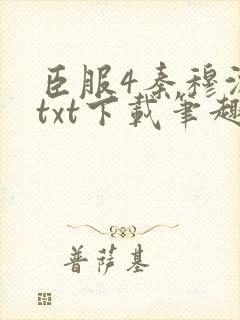 臣服4秦穆
txt下載筆趣
普萨基